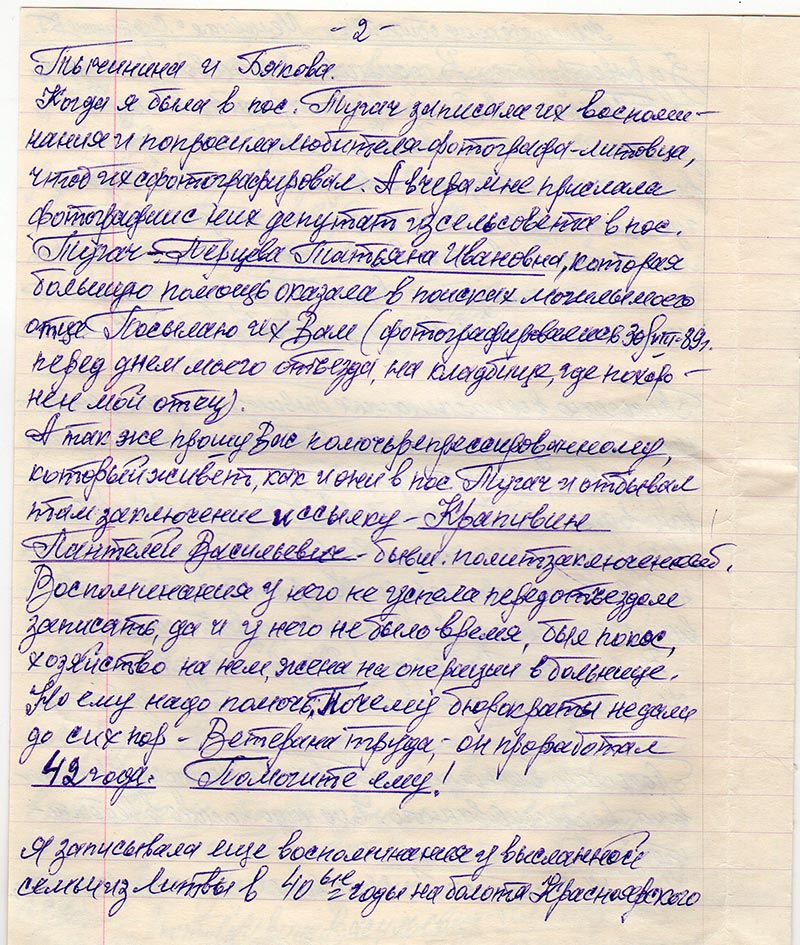 - 2 -
Тычинина и Бякова.
Когда я была в пос. Тугач записала их воспоми-
нания и попросила любителя фотографа-литовца,
чтоб их сфотографировал. А вчера мне прислала
фотографии с них депутат из сельсовета в пос.
Тугач - Перцева Татьяна Ивановна, которая
большую помощь оказала в поисках могилы моего
отца. Посылаю их Вам (фотографировались 30/VIII-89г.
перед днем моего отъезда, на кладбище, где похоро-
нен мой отец).
А так же прошу Вас помочь репрессированному,
который живет, как и они в пос. Тугач и отбывал
там заключение и ссылку - Крапивин
Пантелей Васильевич - бывш. политзаключенный.
Воспоминания у него не успела перед отъездом
записать, да и у него не было время, был покос,
хозяйство на нем, жена на операции в больнице.
Но ему надо помочь, Почему бюрократы не дали
до сих пор - Ветерана труда, - он проработал
42 года. Помогите ему!
Я записывала еще воспоминания у высланной
семьи из Литвы в 40ые годы на болота Красноярского